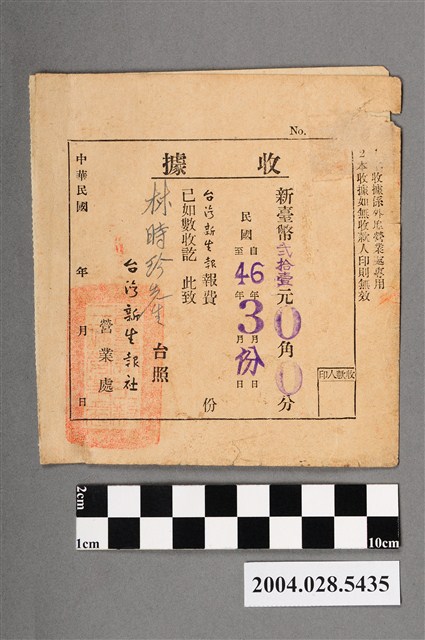 No.
1.本收據係外埠營業處專用
2.本收據如無收款人印則無效
收據
新臺幣貳拾壹元0角0分
民國自46年3月份日
至年月日
台湾新生報報費 份
已如數收訖 此致
林時珍先生 台照
台湾新生報社
營業處
中華民國 年 月 日
收款人印
2cm
1cm
10cm
2004.028.5435